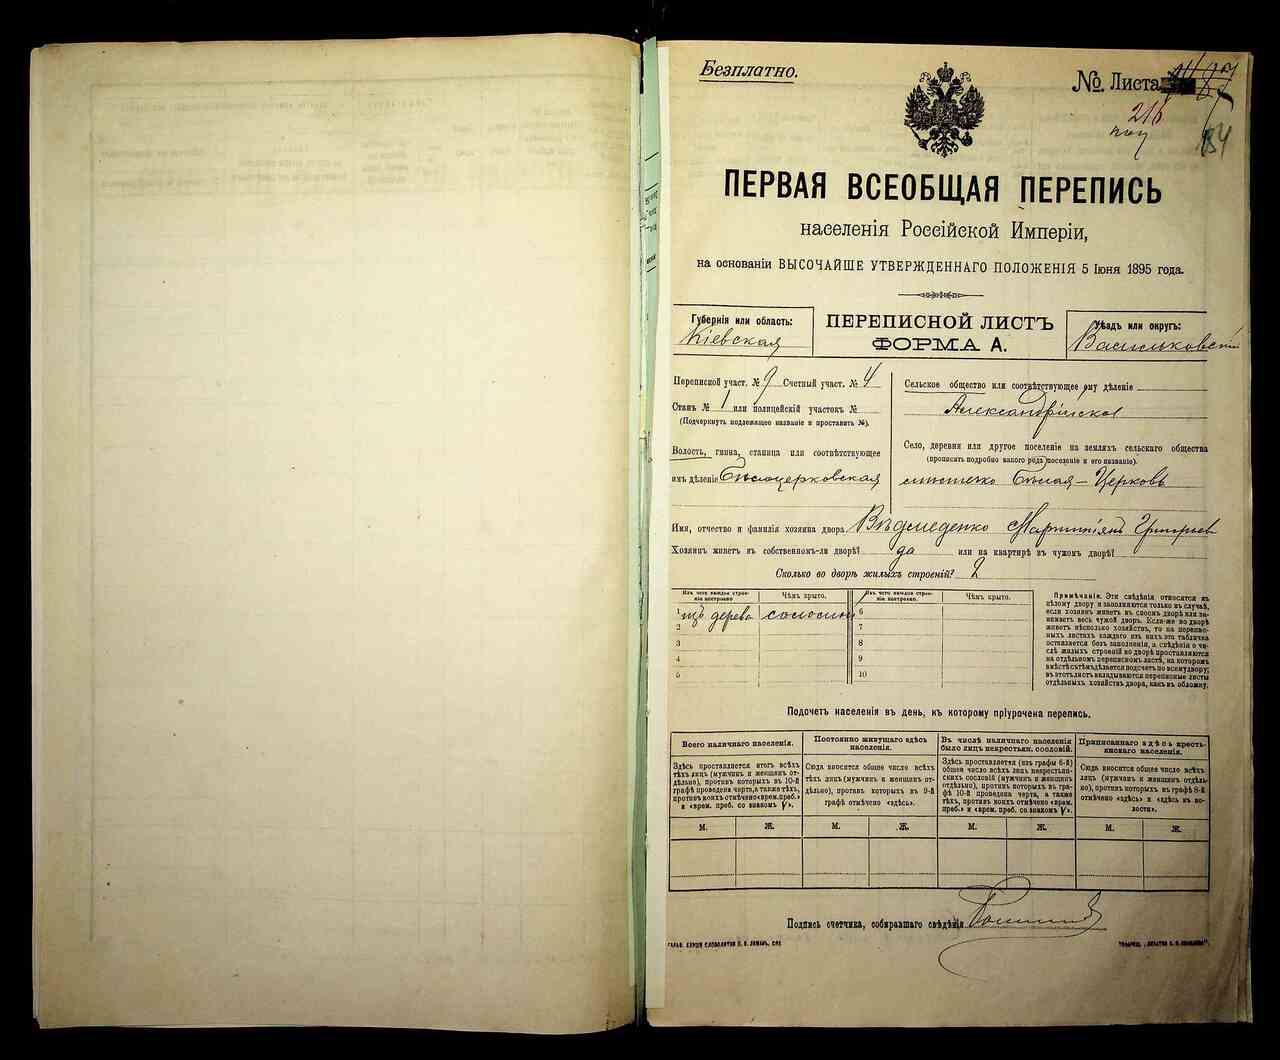 Безплатно.
№ Листа
216
ПЕРВАЯ ВСЕОБЩАЯ ПЕРЕПИСЬ
населенія Россійской Имперіи,
на основаніи ВЫСОЧАЙШЕ УТВЕРЖДЕННАГО ПОЛОЖЕНІЯ 5 Іюня 1895 года.
Губернія или область:
Кіевская
ПЕРЕПИСНОЙ ЛИСТЪ
ФОРМА А.
Уѣздъ или округъ:
Васильковскій
Переписной участ. № 9 Счетный участ. № 4
Станъ № 1 или полицейскій участокъ №
(Подчеркнуть надлежащее названіе и проставить №).
Волость, гмина, станица или соотвѣтствующее
имъ дѣленіе Бѣлоцерковская
Сельское общество или соотвѣтствующее ему дѣленіе
Александрійское
Село, деревня или другое поселеніе на земляхъ сельскаго общества
(прописать подробно какого рода поселеніе и его названіе).
мѣстечко Бѣлая-Церковь
Имя, отчество и фамилія хозяина двора Вѣдмеденко Мартиніянъ Григорьев
Хозяинъ живетъ въ собственномъ-ли дворѣ? да или на квартирѣ въ чужомъ дворѣ?
Сколько во дворѣ жилыхъ строеній? 2
Изъ чего каждое строеніе построено. Чѣмъ крыто. Изъ чего каждое строеніе построено. Чѣмъ крыто.
1 изъ дерева соломою 6
2 7
3 8
4 9
5 10
Примѣчаніе. Эти свѣдѣнія относятся къ
цѣлому двору и заполняются только въ случаѣ,
если хозяинъ живетъ въ своемъ дворѣ или занимаетъ
весь чужой дворъ. Если-же во дворѣ
живетъ нѣсколько хозяйствъ, то на переписныхъ
листахъ каждаго изъ нихъ эта табличка
оставляется безъ заполненія, а свѣдѣнія о числѣ
жилыхъ строеній во дворѣ проставляются
на отдѣльномъ переписномъ листѣ, на которомъ
вмѣстѣ съ тѣмъ дѣлается подсчетъ по всему двору;
въ этотъ листъ вкладываются переписные листы
отдѣльныхъ хозяйствъ двора, какъ въ обложку.
Подсчетъ населенія въ день, къ которому пріурочена перепись.
Всего наличнаго населенія.
Здѣсь проставляется итогъ всѣхъ
тѣхъ лицъ (мужчинъ и женщинъ отдѣльно),
противъ которыхъ въ 10-й
графѣ проведена черта, а также тѣхъ,
противъ коихъ отмѣчено «врем. преб.»
и «врем. преб. со знакомъ V».
Постоянно живущаго здѣсь населенія.
Сюда вносится общее число всѣхъ
тѣхъ лицъ (мужчинъ и женщинъ отдѣльно),
противъ которыхъ въ 9-й
графѣ отмѣчено «здѣсь».
Въ числѣ наличнаго населенія
было лицъ некрестьян. сословій.
Здѣсь проставляется (изъ графы 6-й)
общее число всѣхъ лицъ некрестьянскихъ
сословій (мужчинъ и женщинъ
отдѣльно), противъ которыхъ въ графѣ
10-й проведена черта, а также
тѣхъ, противъ коихъ отмѣчено «врем.
преб.» и «врем. преб. со знакомъ V».
Приписаннаго здѣсь крестьянскаго населенія.
Сюда вносится общее число всѣхъ
лицъ (мужчинъ и женщинъ отдѣльно),
противъ которыхъ въ графѣ 8-й
отмѣчено «здѣсь» и «здѣсь въ волости».
М. Ж. М. Ж. М. Ж. М. Ж.
Подпись счетчика, собиравшаго свѣдѣнія